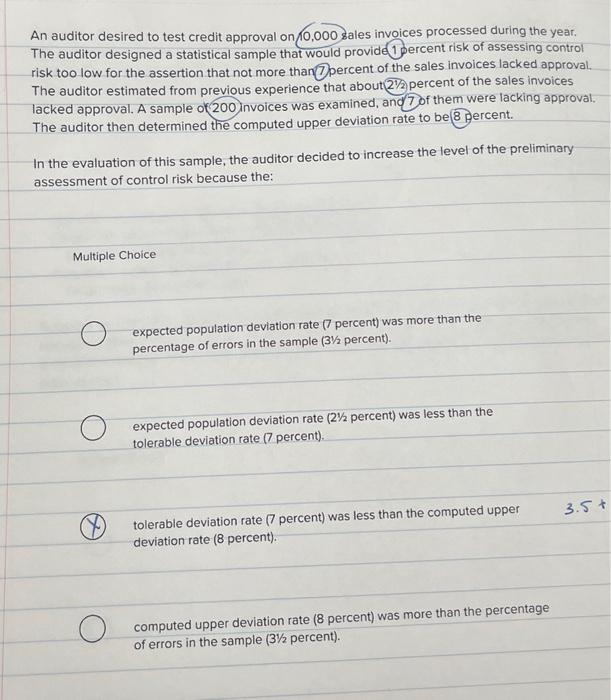 An auditor desired to test credit approval on 10,000 sales invoices processed during the year.
The auditor designed a statistical sample that would provide 1 percent risk of assessing control
risk too low for the assertion that not more than 7 percent of the sales invoices lacked approval.
The auditor estimated from previous experience that about 2½ percent of the sales invoices
lacked approval. A sample of 200 invoices was examined, and 7 of them were lacking approval.
The auditor then determined the computed upper deviation rate to be 8 percent.
In the evaluation of this sample, the auditor decided to increase the level of the preliminary
assessment of control risk because the:
Multiple Choice
expected population deviation rate (7 percent) was more than the
percentage of errors in the sample (3½ percent).
expected population deviation rate (2½ percent) was less than the
tolerable deviation rate (7 percent).
X tolerable deviation rate (7 percent) was less than the computed upper 3.5 +
deviation rate (8 percent).
computed upper deviation rate (8 percent) was more than the percentage
of errors in the sample (3½ percent).